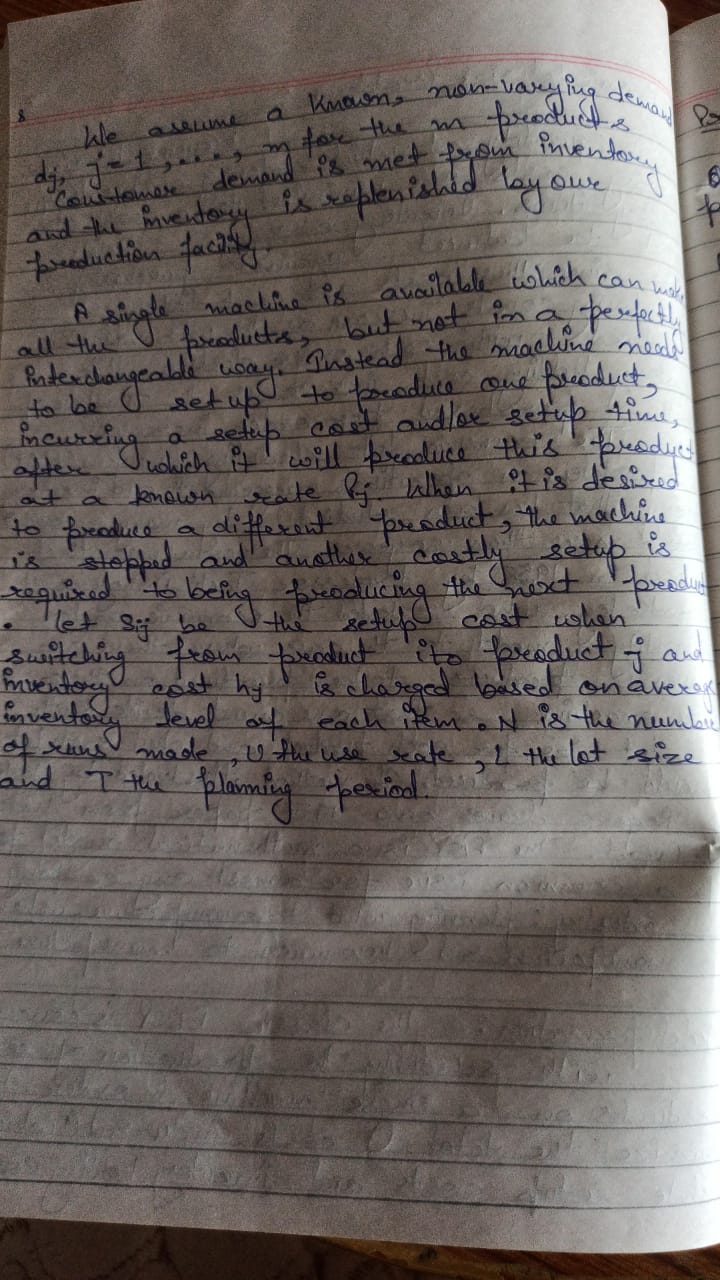 We assume a known, non-varying demand
dj, j=1,...., m for the m products
Coustomer demand is met from inventory
and the inventory is replenished by our
production facility.
A single machine is available which can make
all the products, but not in a perfectly
interchangeable way. Instead the machine needs
to be set up to produce one product,
incurring a setup cost and/or setup time,
after which it will produce this product
at a known rate Pj. When it is desired
to produce a different product, the machine
is stopped and another costly setup is
required to being producing the next product
. let Sij be the setup cost when
switching from product i to product j and
inventory cost hj is charged based on average
inventory level of each item. N is the number
of runs made, U the use rate, L the lot size
and T the planning period.